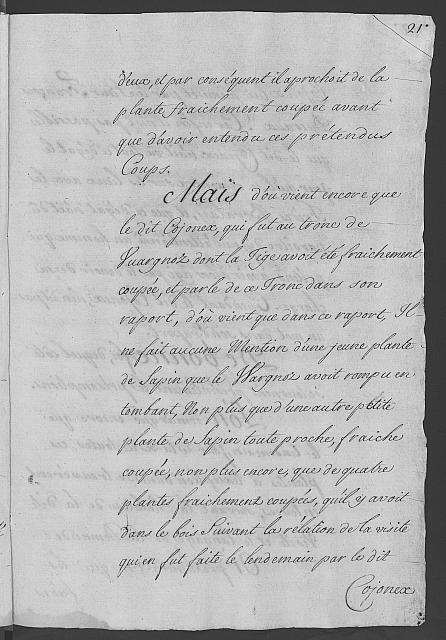 21
d'eux, et par conséquent il aprochoit de la
plante fraichement coupée avant
que d'avoir entendu ces prétendus
Coups.
Maïs d'où vient encore que
le dit Cojonex, qui fut au tronc de
Vuargnoz dont la Tige avoit été fraichement
coupée, et parle de ce Tronc dans son
raport, d'où vient que dans ce raport, Il
ne fait aucune Mention d'une jeune plante
de Sapin que le Wargnoz avoit rompu en
tombant, Non plus que d'une autre petite
plante de Sapin toute proche, fraiche
coupée, non plus encore, que de quatre
plantes fraichement coupées, qu'il y avoit
dans le bois Suivant la rélation de la visite
qui en fut faite le lendemain par le dit
Cojonex